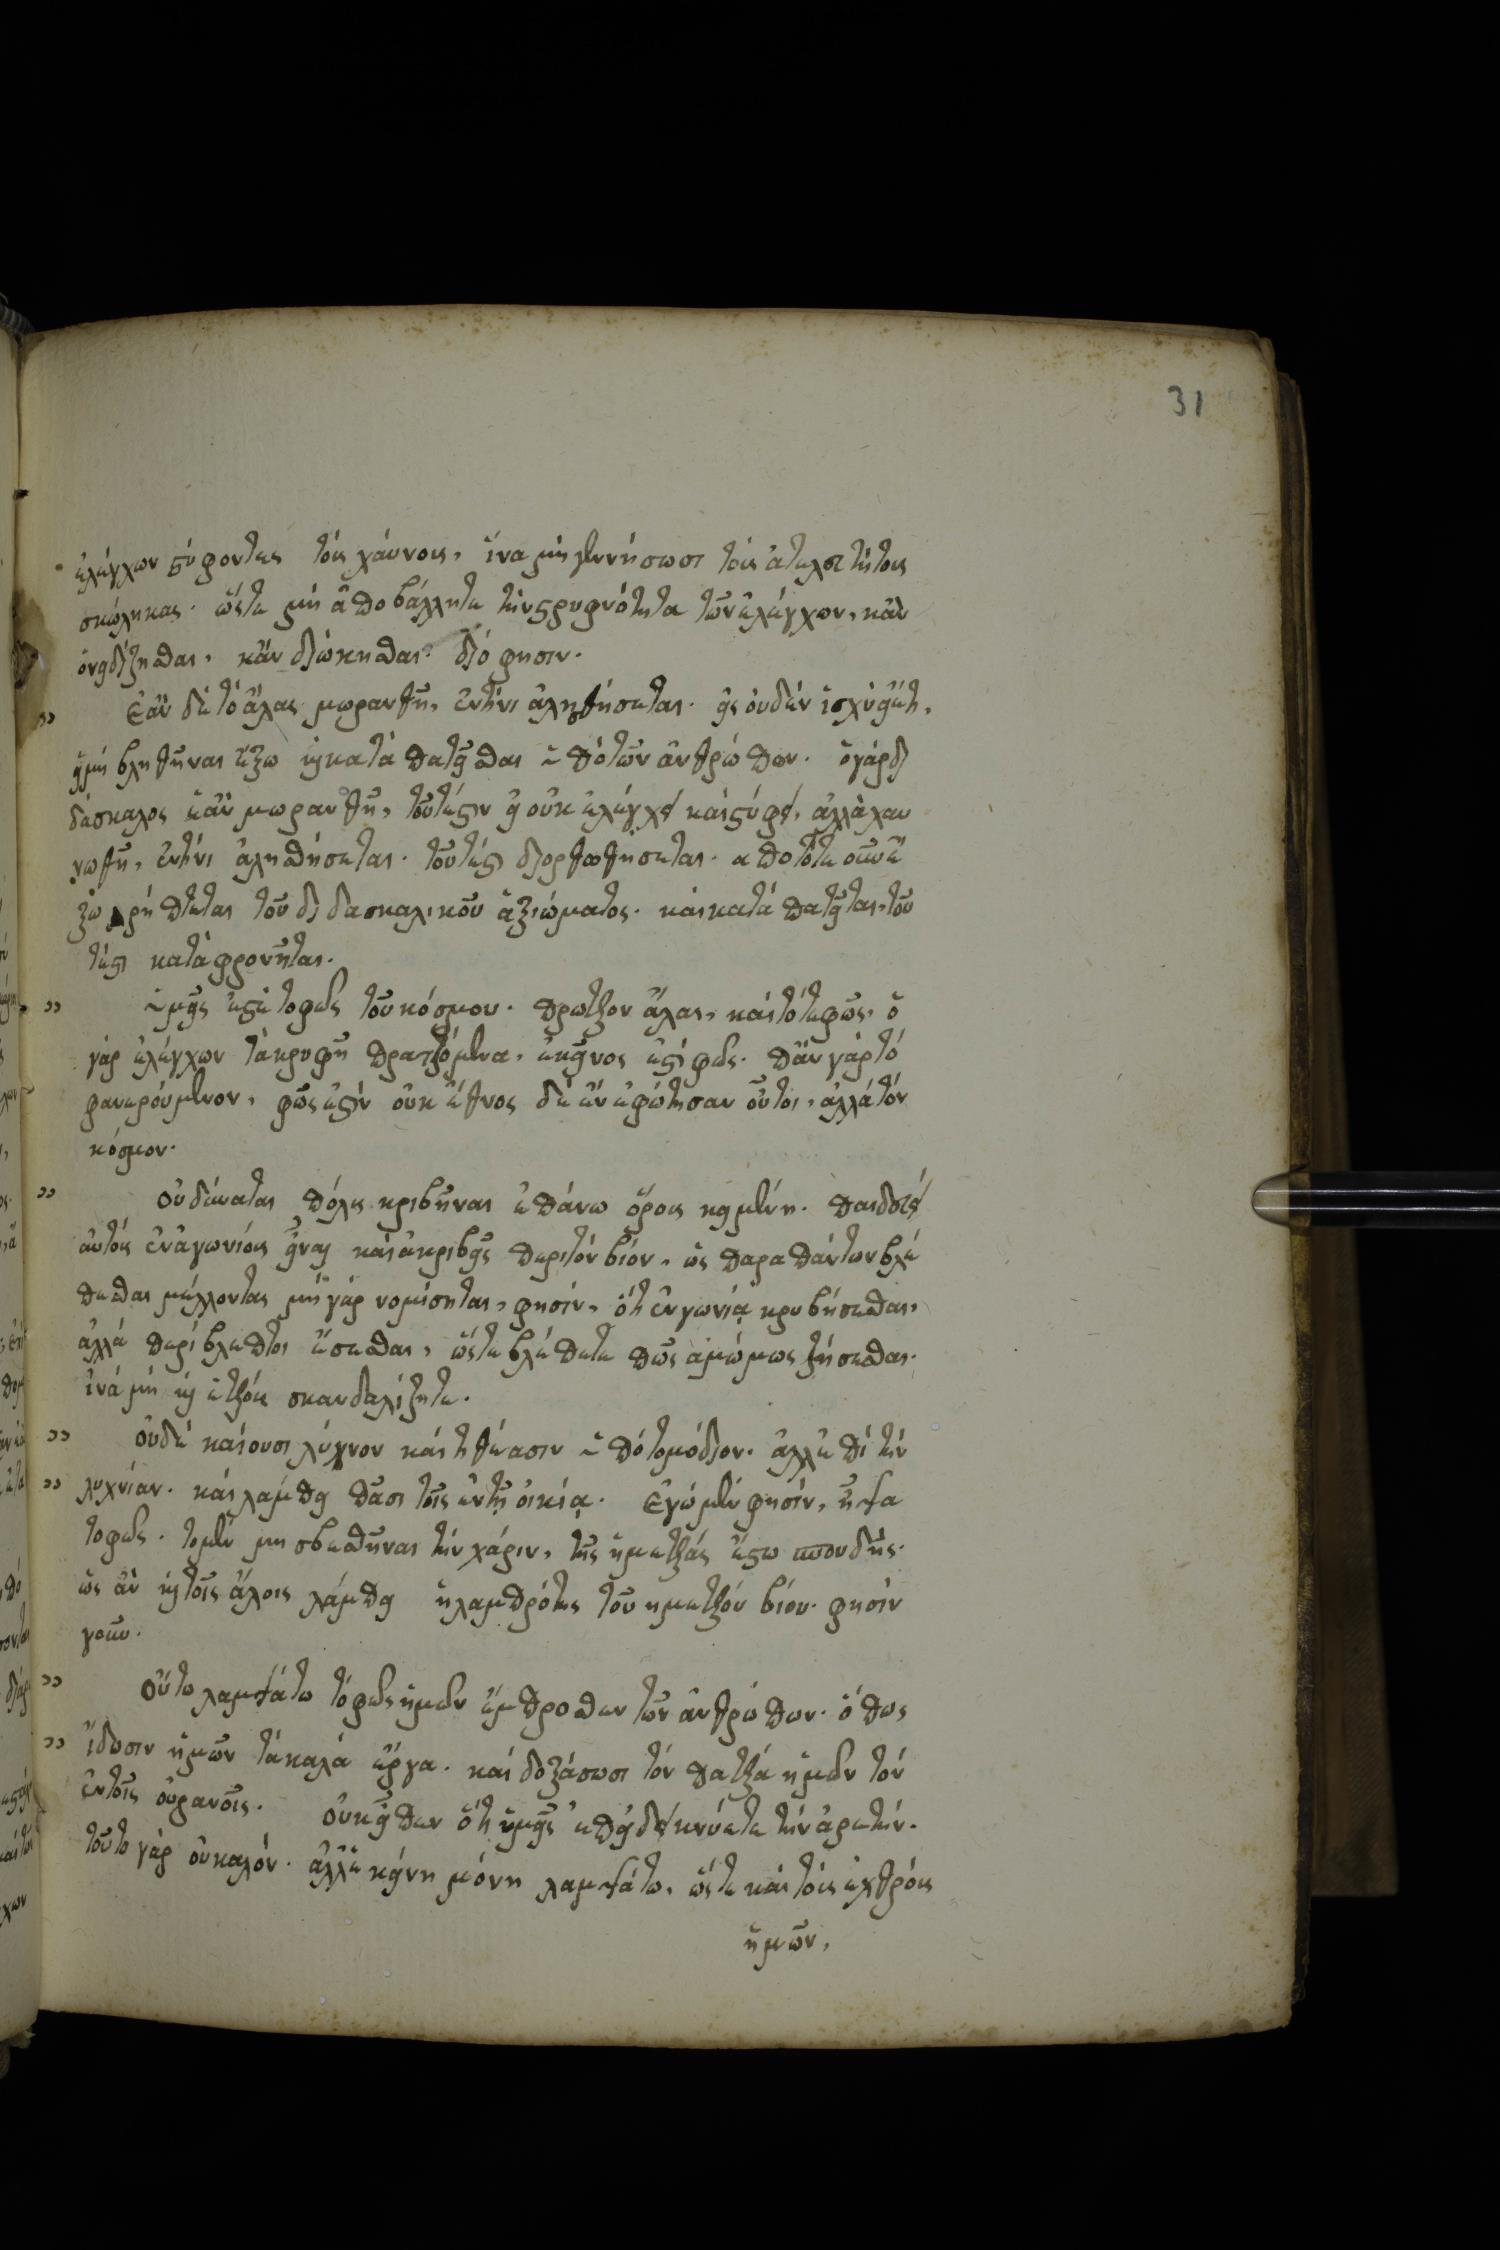 31
ἐλέγχων στύφοντες τοῖς χάυνοις, ἵνα μὴ γεννήσωσι τοῖς ἀτελετήτοις
σκώληκας. ὥστε μὴ ἀποβάλλητε τὴν στρυφνότητα τῶν ἐλέγχων, κἂν
ὀνειδίζησθαι, κἂν διώκησθαι. διό φησιν.
" Ἐὰν δὲ τὸ ἅλας μωρανθῆ, ἐν τίνι ἁλησθήσεται. εἰς οὐδὲν ἰσχύει ἔτι,
εἰ μὴ βληθῆναι ἔξω καὶ καταπατεῖσθαι ὑπὸ τῶν ἀνθρώπων. ὁ γὰρ δι
δάσκαλος ἐὰν μωρανθῆ, τουτέστιν εἰ οὐκ ἐλέγχει καὶ στύφει, ἀλλὰ χαυ
νωθῆ, ἐν τίνι ἁλησθήσεται. τουτέστι διορθωθήσεται. ἀπὸ τότε οὖν ἔ
ξω ῥήπτεται τοῦ διδασκαλικοῦ ἀξιώματος. καὶ καταπατεῖται, του
τέστι καταφρονῆται.
" ὑμεῖς ἐστὲ τὸ φῶς τοῦ κόσμου. πρῶτερον ἅλας, καὶ τότε φῶς, ὁ
γὰρ ἐλέγχων τὰ κρυφῆ πραττόμενα, ἐκεῖνος ἐστὶ φῶς. πᾶν γὰρ τὸ
φανερούμενον, φῶς ἐστὶν οὐκ ἔθνος δὲ ἓν ἐφώτησαν οὗτοι, ἀλλὰ τὸν
κόσμον.
" Οὐ δύναται πόλις κριβῆναι ἐπάνω ὄρους κειμένη. παιδεύει
αὐτοὺς ἐναγωνίους εἶναι καὶ ἀκριβεῖς περὶ τὸν βίον, ὡς παρὰ πάντων βλέ
πεσθαι μέλλοντας μὴ γὰρ νομίσηται, φησίν, ὅτι ἐν γωνίᾳ κρυβήσεσθαι,
ἀλλὰ περίβλεπτοι ἔσεσθαι, ὥστε βλέπετε πῶς ἀμώμως ζήσεσθαι.
ἱνὰ μὴ καὶ ἑτέρους σκανδαλίζητε.
" οὐδὲ καίουσι λύχνον καὶ τιθέασιν ὑπὸ τὸ μόδιον. ἀλλ' ἐπὶ τὴν
" λυχνίαν. καὶ λάμπει πᾶσι τοῖς ἐν τῇ οἰκίᾳ. Ἐγὼ μὲν φησίν, ἧψα
τὸ φῶς. τὸ μὲν μὴ σβεσθῆναι τὴν χάριν, τῆς ἡμετέρας ἔστω σπουδῆς.
ὡς ἂν καὶ τοῖς ἄλοις λάμπει ἡ λαμπρότης τοῦ ἡμετέρου βίου. φησὶν
γοῦν.
" Οὕτω λαμψάτω τὸ φῶς ἡμῶν ἔμπροσθεν τῶν ἀνθρώπων. ὅπως
" ἴδωσιν ἡμῶν τὰ καλὰ ἔργα. καὶ δοξάσωσι τὸν πατέρα ἡμῶν τὸν
ἐν τοῖς οὐρανοῖς. οὐκ εἶπεν ὅτι ἡμεῖς ἐπιδεικνύετε τὴν ἀρετήν.
τοῦτο γὰρ οὐ καλόν. ἀλλ' ἐκείνη μόνη λαμψάτω, ὥστε καὶ τοὺς ἐχθροὺς
ἡμῶν,